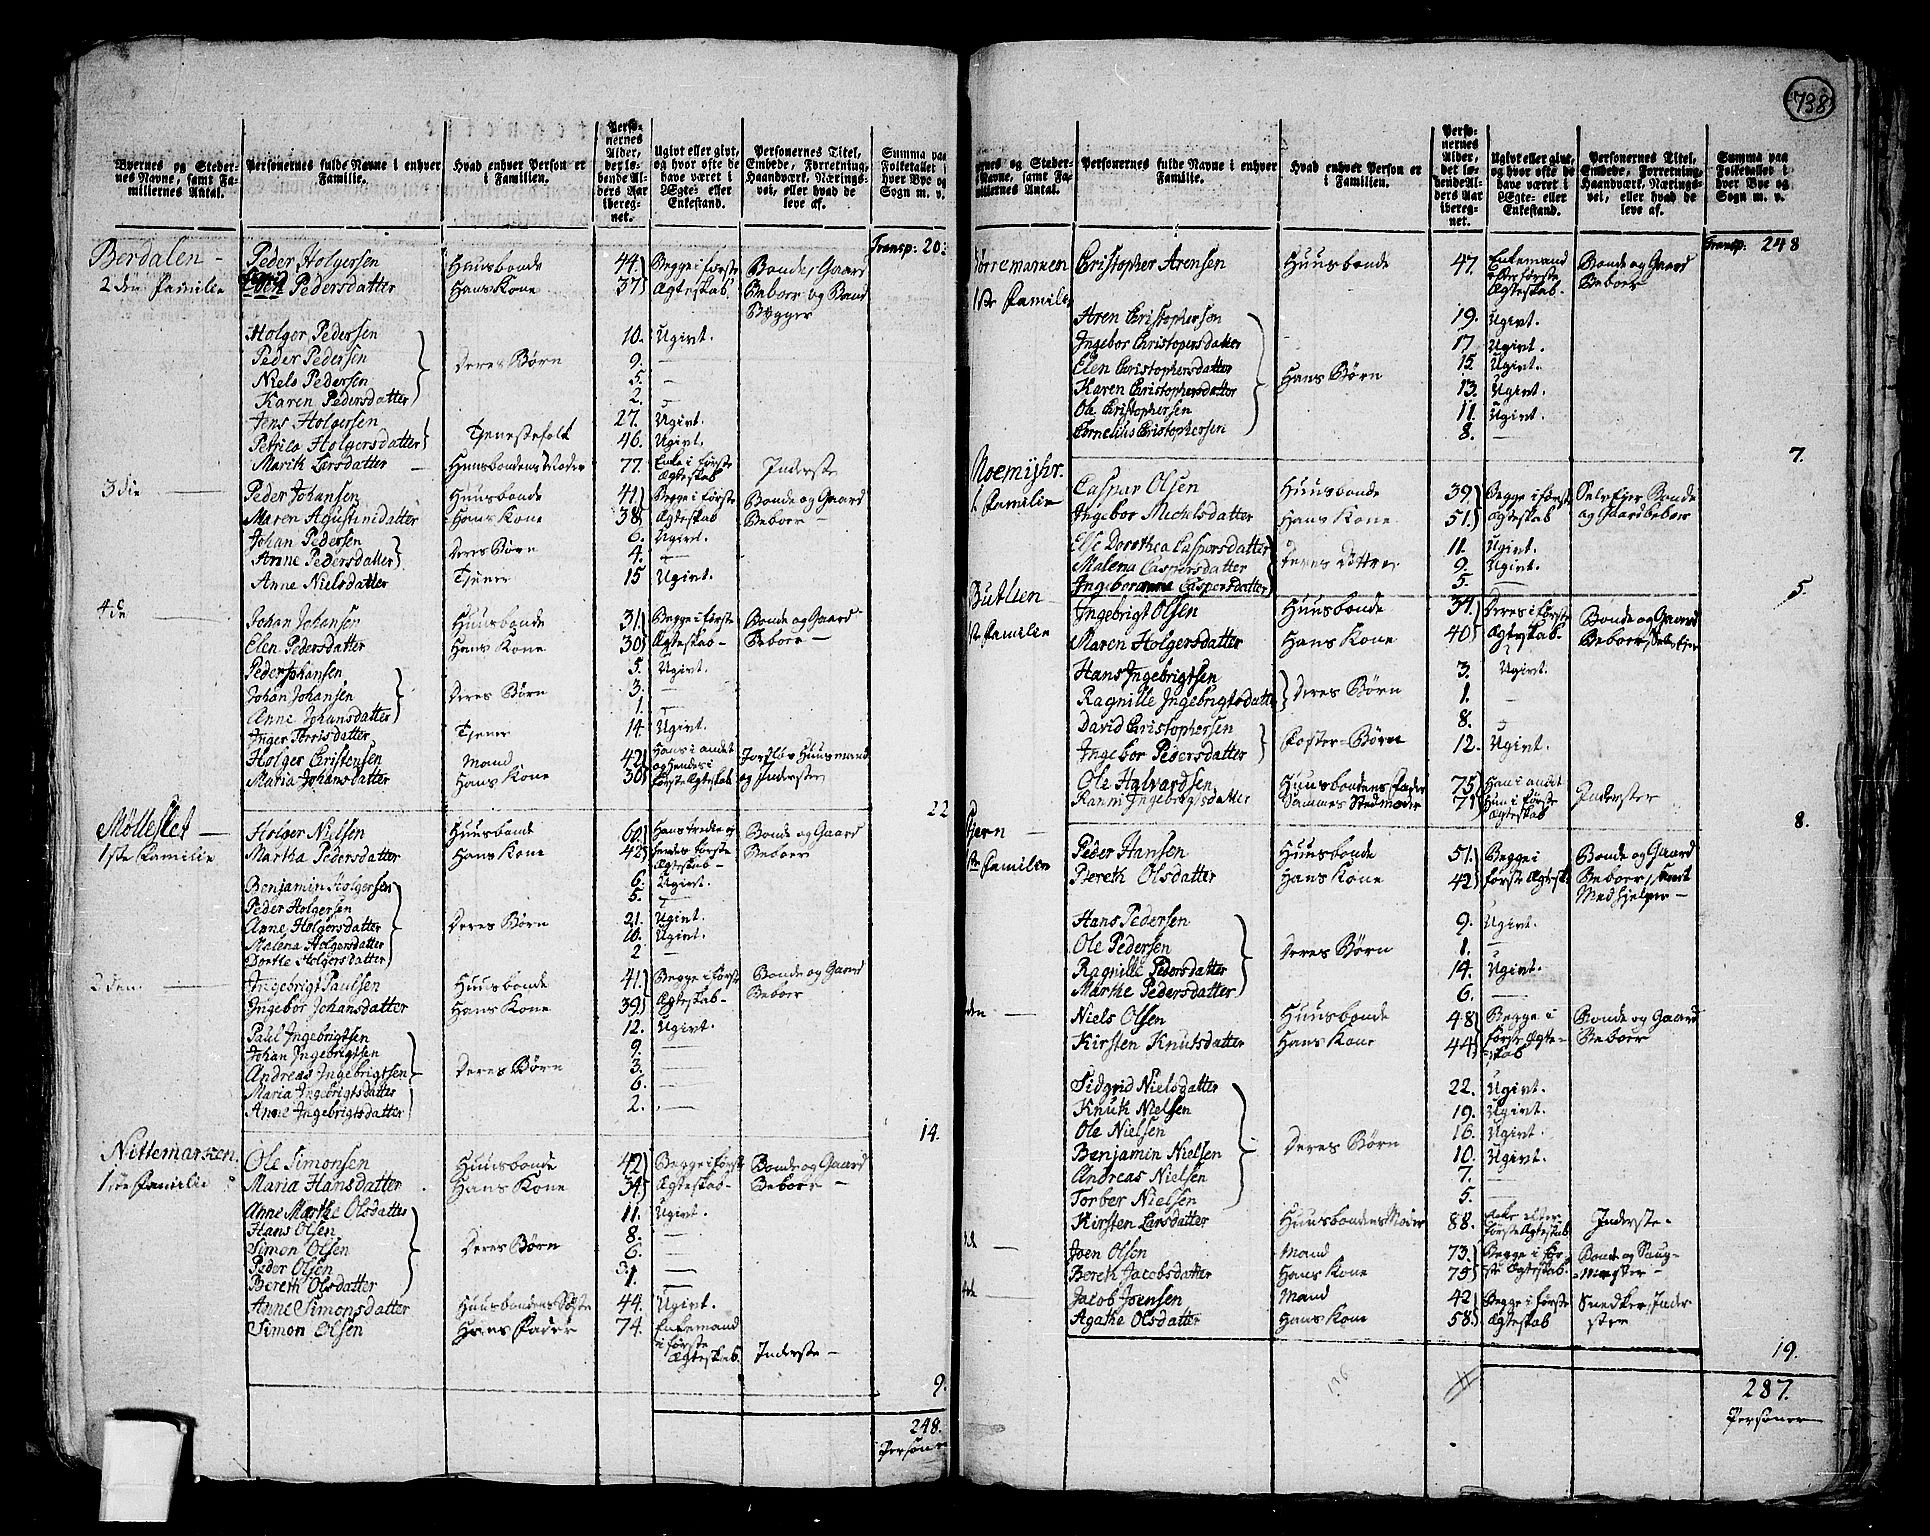 738
Byernes og Stedernes Navne, samt Familiernes Antal.
Personernes fulde Navne i enhver Familie.
Hvad enhver Person er i Familien.
Personernes Alder, det løbende Alders Aar iberegnet.
Ugivt eller givt, og hvor ofte de have været i Ægte- eller Enkestand.
Personernes Titel, Embede, Forretning, Haandværk, Næringsvei, eller hvad de leve af.
Summa paa Folketallet i hver Bye og Sogn m. v.
Transp: 20
Berdalen - Peder Holgersen Huusbonde 44. Begge i første Bonde, Gaard
2den Familie Pedersdatter Hans Kone 37 Ægteskab. Beboer og Baad Bygger
Holger Pedersen 10. Ugivt.
Peder Pedersen Deres Børn 9. —
Niels Pedersen 5. —
Karen Pedersdatter 2. —
Jens Holgersen 27. Ugivt.
Petrilo Holgersdatter Tjenestefolk 46. Ugivt.
Marik Larsdatter Huusbondens Moder 77. Enke i første Ægteskab Inderste
3die — Peder Johansen Huusbonde 41. Begge i første Bonde og Gaard
Maren Agustinidatter Hans Kone 38 Ægteskab Beboer —
Johan Pedersen 6. Ugivt.
Anne Pedersdatter Deres Børn 4. —
Anne Nielsdatter Tjener 15 Ugivt.
4de Johan Johansen Huusbonde 31. Begge i første Bonde og Gaard
Elen Pedersdatter Hans Kone 30 Ægteskab - Beboer —
Peder Johansen 5. Ugivt.
Johan Johansen Deres Børn 3. —
Anne Johansdatter 1. —
Inger Torrisdatter Tjener 14 Ugivt.
Holger Cristensen Mand 42 Hans i andet Jordløs Huusmand
Maria Johansdatter Hans Kone 30 og Hendes i første Ægteskab og Inderster
22
Møllestet — Holger Nielsen Huusbonde 60. Hans tredie og Bonde og Gaard
1ste Familie Martha Pedersdatter Hans Kone 42 Hendes første Ægteskab - Beboer
Benjamin Holgersen 6. Ugivt.
Peder Holgersen 5. —
Anne Holgersdatter Deres Børn 21. Ugivt.
Malena Holgersdatter 10. Ugivt.
Dortle Holgersdatter 2 —
2den. — Ingebrigt Paulsen Huusbonde 41. Begge i første Bonde og Gaard
Ingebor Johansdatter Hans Kone 39 Ægteskab - Beboer
Paul Ingebrigtsen 12. Ugivt.
Johan Ingebrigtsen 9. —
Andreas Ingebrigtsen Deres Børn 3. —
Maria Ingebrigtsdatter 6. —
Anne Ingebrigtsdatter 2. —
14.
Nittemarken Ole Simonsen Huusbonde 42 Begge i første Bonde og Gaard
1ste Familie Maria Hansdatter Hans Kone 34. Ægteskab - Beboer —
Anne Marthe Olsdatter 11. Ugivt.
Hans Olsen 8. —
Simon Olsen Deres Børn 6. —
Peder Olsen 3. —
Bereth Olsdatter 1. —
Anne Simonsdatter Huusbondens Søste 44. Ugivt.
Simon Olsen Hans Fader 74. Enkemand i første Ægteskab. Inderste —
9.
248.
Persone
Byernes og Stedernes Navne, samt Familiernes Antal.
Personernes fulde Navne i enhver Familie.
Hvad enhver Person er i Familien.
Personernes Alder, det løbende Alders Aar iberegnet.
Ugivt eller givt, og hvor ofte de have været i Ægte- eller Enkestand.
Personernes Titel, Embede, Forretning, Haandværk, Næringsvei, eller hvad de leve af.
Summa paa Folketallet i hver Bye og Sogn m. v.
Transp: 248
Torremarken Cristopher Arensen Huusbonde 47. Enkemand Bonde og Gaard
1ste Familie efter første Ægteskab. Beboer
Aren Cristophersen 19. Ugivt.
Ingebor Cristopersdatter 17 Ugivt.
Elen Cristophersdatter Hans Børn 15 Ugivt.
Karen Cristophersdatter 13. Ugivt.
Ole Cristophersen 11. Ugivt.
Cornelius Cristophersen 8. —
7.
Noemijhr. Caspar Olsen Huusbonde 39. Begge i først Selvejer Bonde
1 Familie Ingebor Michelsdatter Hans Kone 51. Ægteskab og Gaardbeboer
Else Dorothea Caspersdatter 11. Ugivt.
Malena Caspersdatter Deres Døttre 9. Ugivt.
Ingeboranne Caspersdatter 5. —
5.
Butlien Ingebrigt Olsen Huusbonde 37. Deres i første Bonde og Gaard
1ste Familie Maren Holgersdatter Hans Kone 40 Ægteskab - Beboer, Selvejer
Hans Ingebrigtsen 3. Ugivt.
Ragnille Ingebrigtsdatte Deres Børn 1. —
David Cristophersen 8. —
Ingebor Pedersdatter Foster-Børn 12. Ugivt.
Ole Halvardsen Huusbondens Fader 75 Han i andet
Ranni Ingebregtsdatter Sammes Stedmoder 71 Hun i første Ægteskab Inderster
8.
Tjern — Peder Hansen Huusbonde 51. Begge i Bonde og Gaard
1ste Familie Bereth Olsdatter Hans Kone 42 første Ægtesk. Beboer, samt Medhjelper —
Hans Pedersen 9. Ugivt.
Ole Pedersen Deres Børn 1. —
Ragnille Pedersdatter 14. Ugivt.
Marthe Pedersdatter 6. —
den — Niels Olsen Huusbonde 48 Begge i Bonde og Gaard
Kirsten Knutsdatter Hans Kone 44 første Ægteskab Beboer
Sidgrid Nielsdatter 22. Ugivt.
Knuk Nielsen 19. Ugivt.
Ole Nielsen 16. Ugivt.
Benjamin Nielsen Deres Børn 10. Ugivt.
Andreas Nielsen 7. —
Torber Nielsen 5. —
Kirsten Larsdatter Huusbondens Moder 88. Enke efter første Ægteskab Inderste.
3de — Joen Olsen Mand 73. Begge i første Bonde og Saug-
Bereth Jacobsdatter Hans Kone 75 Ægteskab. Mester —
4de — Jacob Joensen Mand 42 Begge i første Snedker, Inder
Agathe Olsdatter Hans Kone 58. Ægteskab ster
19.
287.
Personer
136